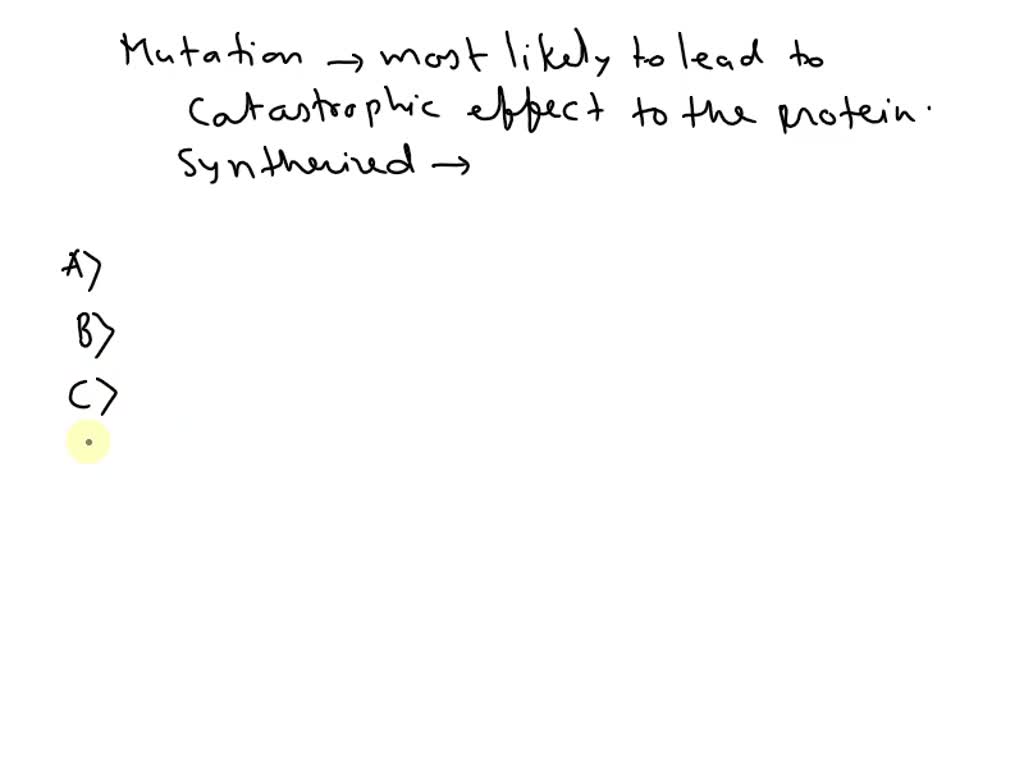 Mutation → most likely to lead to
catastrophic effect to the protein.
Syntherized →
A>
B>
C>